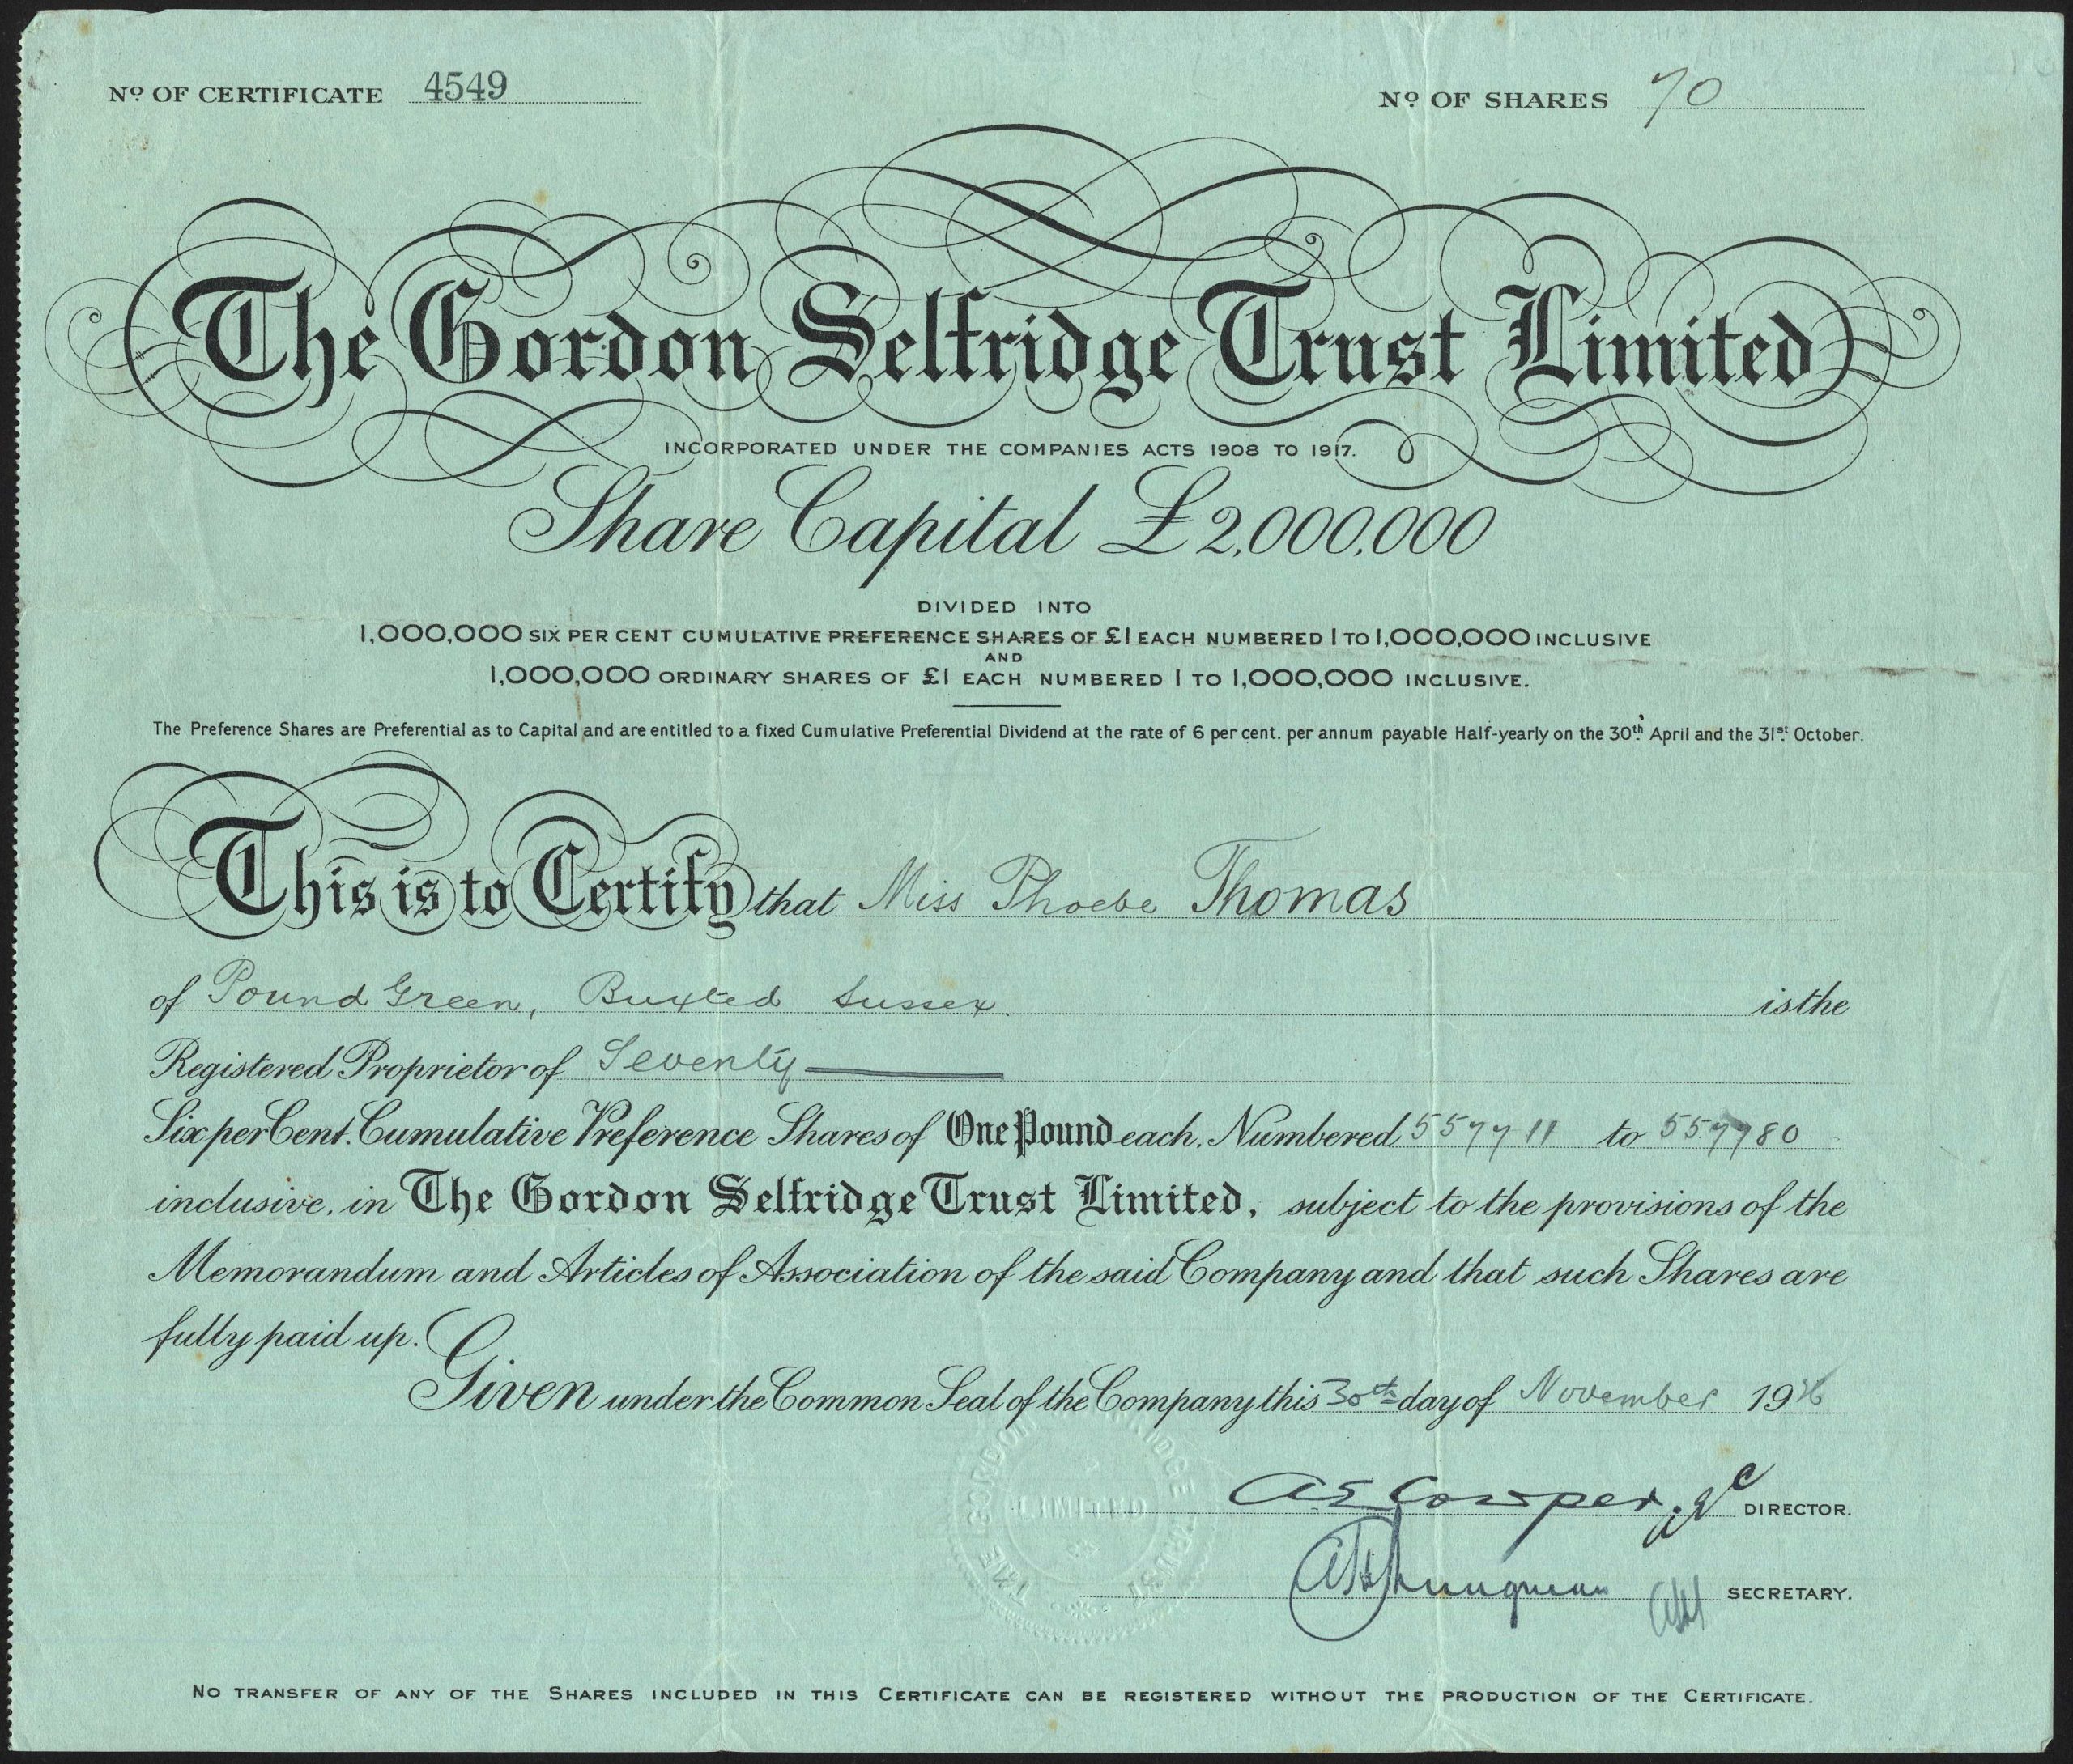 Nº OF CERTIFICATE 4549
Nº OF SHARES 70
The Gordon Selfridge Trust Limited
INCORPORATED UNDER THE COMPANIES ACTS 1908 TO 1917.
Share Capital £2,000,000
DIVIDED INTO
1,000,000 SIX PER CENT CUMULATIVE PREFERENCE SHARES OF £1 EACH NUMBERED 1 TO 1,000,000 INCLUSIVE
AND
1,000,000 ORDINARY SHARES OF £1 EACH NUMBERED 1 TO 1,000,000 INCLUSIVE.
The Preference Shares are Preferential as to Capital and are entitled to a fixed Cumulative Preferential Dividend at the rate of 6 per cent. per annum payable Half-yearly on the 30th April and the 31st October.
This is to Certify that Miss Phoebe Thomas
of Pound Green, Buxted Sussex. is the
Registered Proprietor of Seventy
Six per Cent. Cumulative Preference Shares of One Pound each, Numbered 557711 to 557780
inclusive, in The Gordon Selfridge Trust Limited, subject to the provisions of the
Memorandum and Articles of Association of the said Company and that such Shares are
fully paid up.
Given under the Common Seal of the Company this 30th day of November 19
A E Cowper DIRECTOR.
SECRETARY.
THE GORDON SELFRIDGE TRUST
LIMITED
NO TRANSFER OF ANY OF THE SHARES INCLUDED IN THIS CERTIFICATE CAN BE REGISTERED WITHOUT THE PRODUCTION OF THE CERTIFICATE.